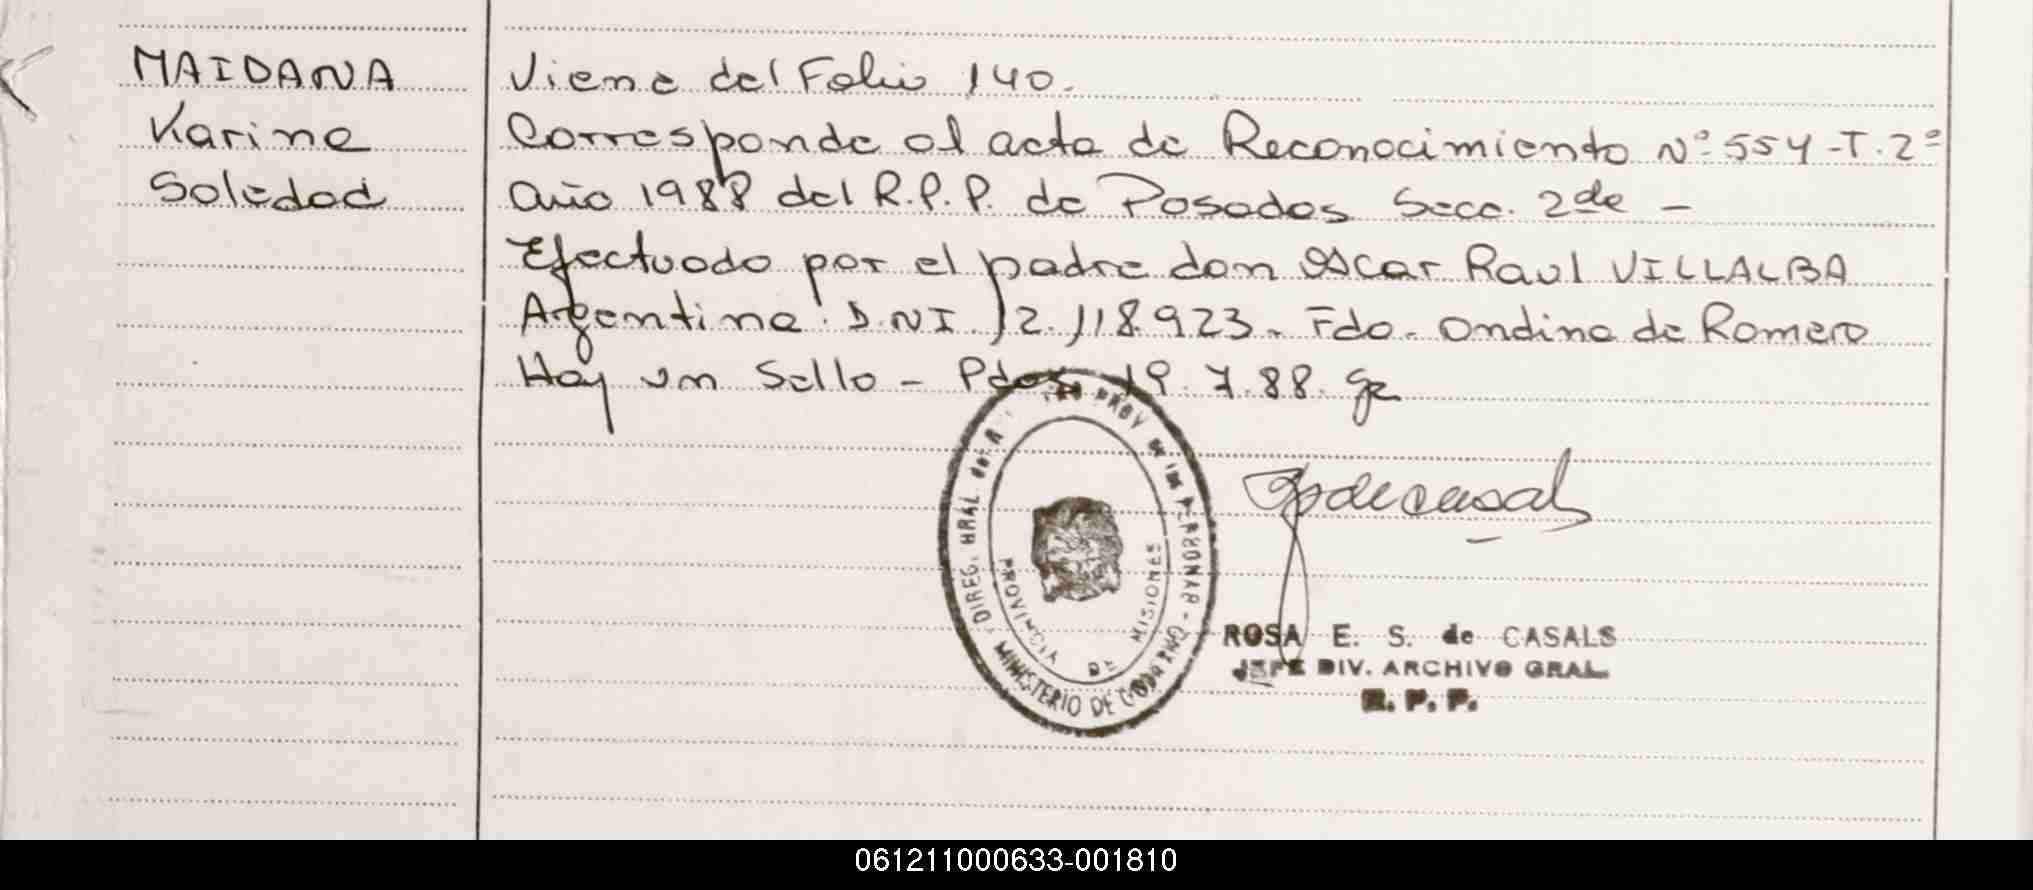 MAIDANA
Karina
Soledad
Viene del Folio 140.
Corresponde al acta de Reconocimiento Nº 554-T.2º
Año 1988 del R.P.P. de Posadas Secc. 2da -
Efectuado por el padre don Oscar Raul VILLALBA
Argentino. D.N.I. 12.118.923. Fdo. Ondina de Romero
Hay un Sello - Pdas. 19.7.88.
DIREC. GRAL. del R. PROV. DE LAS PERSONAS
MINISTERIO DE GOBIERNO
PROVINCIA DE MISIONES
ROSA E. S. de CASALS
JEFE DIV. ARCHIVO GRAL.
R. P. P.
061211000633-001810